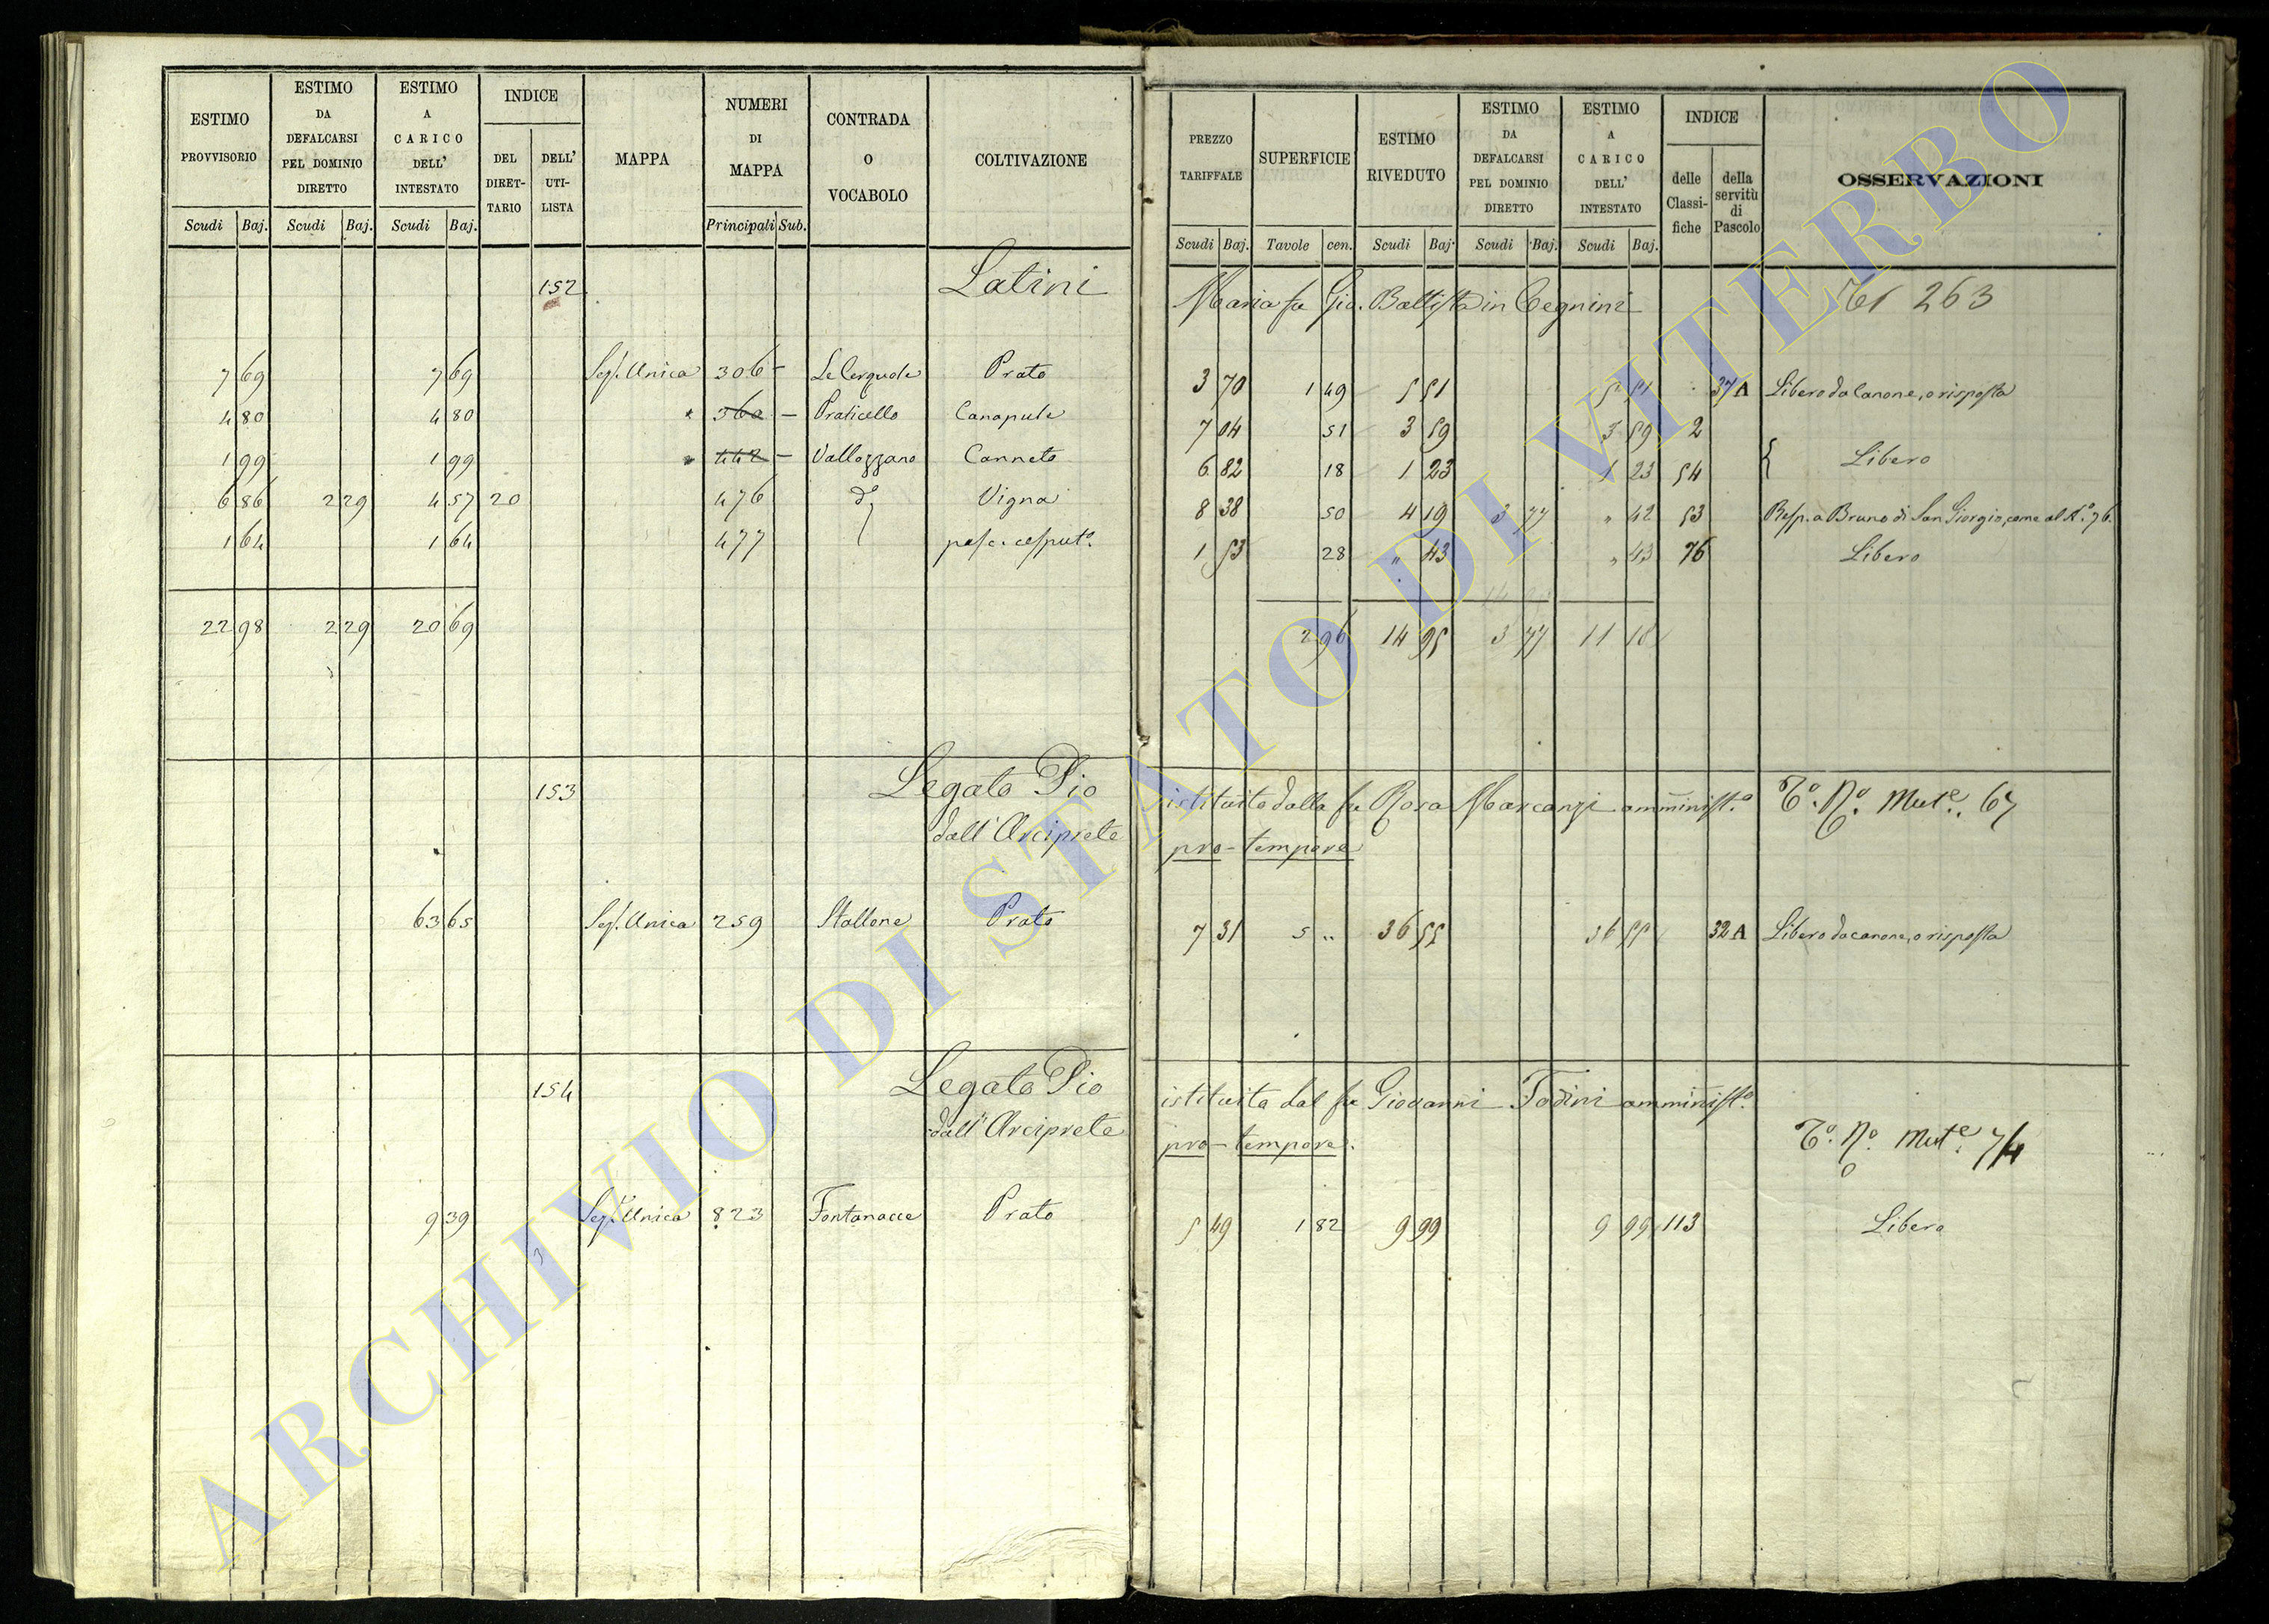 ESTIMO PROVVISORIO | ESTIMO DA DEFALCARSI PEL DOMINIO DIRETTO | ESTIMO A CARICO DELL' INTESTATO | INDICE | DEL DIRET-TARIO | DELL' UTI-LISTA | MAPPA | NUMERI DI MAPPA | CONTRADA O VOCABOLO | COLTIVAZIONE | PREZZO TARIFFALE | SUPERFICIE | ESTIMO RIVEDUTO | ESTIMO DA DEFALCARSI PEL DOMINIO DIRETTO | ESTIMO A CARICO DELL' INTESTATO | INDICE | delle Classi-fiche | della servitù di Pascolo | OSSERVAZIONI
Scudi Baj. | Scudi Baj. | Scudi Baj. | Principali Sub. | Scudi Baj. | Tavole cen. | Scudi Baj. | Scudi Baj. | Scudi Baj.
152 Latini Maria fu Gio. Battista in Cegnini 263
7 69 | 7 69 | Sez. Unica | 306 – | Le Cerquole | Prato | 3 70 | 1 49 | 5 51 | 5 51 | 37 A | Libero da Canone, o risposta
4 80 | 4 80 | 360 – | Praticello | Canapule | 7 04 | 51 | 3 59 | 3 59 | 2
1 99 | 1 99 | 442 – | Vallozzano | Canneto | 6 82 | 18 | 1 23 | 1 23 | 54 | Libero
6 86 | 2 29 | 4 57 | 20 | 476 | d° | Vigna | 8 38 | 50 | 4 19 | 3 77 | " 42 | 53 | Risp. a Bruno di San Giorgio, come al N.° 76
1 64 | 1 64 | 477 | pasc. cesput.° | 1 53 | 28 | " 43 | " 43 | 76 | Libero
22 98 | 2 29 | 20 69 | 2 96 | 14 95 | 3 77 | 11 18
153 Legato Pio istituito dalla fu Rosa Marcanzi amminist.° T.° N.° Mut.e 67
dall' Arciprete pro-tempore
63 65 | Sez. Unica | 259 | Stallone | Prato | 7 31 | 5 " | 36 55 | 36 55 | 32 A | Libero da canone, o risposta
154 Legato Pio istituito dal fu Giovanni Todini amminist.°
dall' Arciprete pro-tempore. T.° N.° Mut.e 74
9 39 | Sez. Unica | 823 | Fontanacce | Prato | 5 49 | 1 82 | 9 99 | 9 99 | 113 | Libero
ARCHIVIO DI STATO DI VITERBO